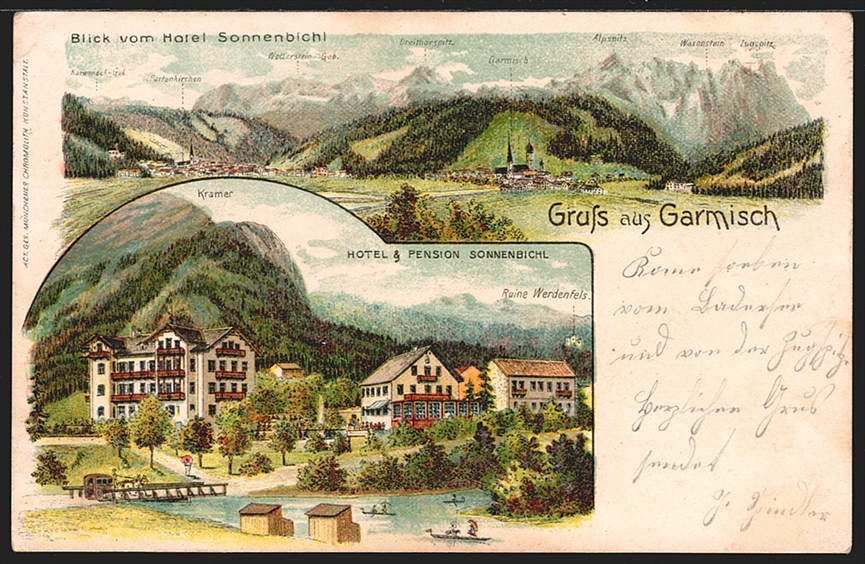 Blick vom Hotel Sonnenbichl
Karwendel-Geb.
Partenkirchen
Wetterstein-Geb.
Dreithorspitz
Garmisch
Alpspitz
Waxenstein Zugspitz
ACT. GES. MÜNCHENER CHROMOLITH. KUNSTANSTALT.
Gruſs aus Garmisch
Kramer
HOTEL & PENSION SONNENBICHL
Ruine Werdenfels.
Kome soeben
vom Badersee
und von der Zugspitze
Herzlichen Grus
sendet